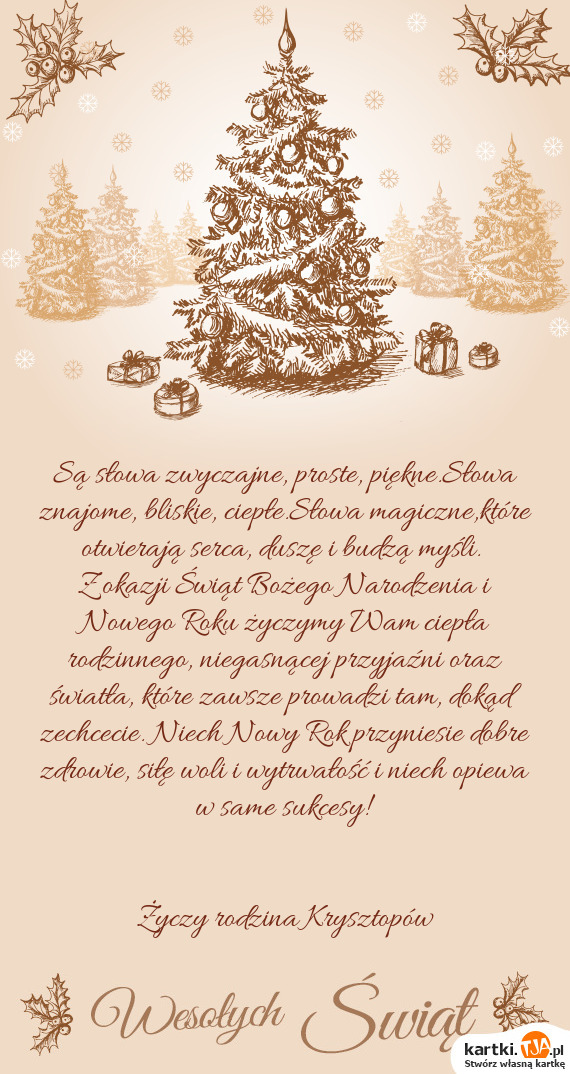 Są słowa zwyczajne, proste, piękne.Słowa
znajome, bliskie, ciepłe.Słowa magiczne,które
otwierają serca, duszę i budzą myśli.
Z okazji Świąt Bożego Narodzenia i
Nowego Roku życzymy Wam ciepła
rodzinnego, niegasnącej przyjaźni oraz
światła, które zawsze prowadzi tam, dokąd
zechcecie. Niech Nowy Rok przyniesie dobre
zdrowie, siłę woli i wytrwałość i niech opiewa
w same sukcesy!
Życzy rodzina Krysztopów
Wesołych Świąt
kartki.TJA.pl
Stwórz własną kartkę